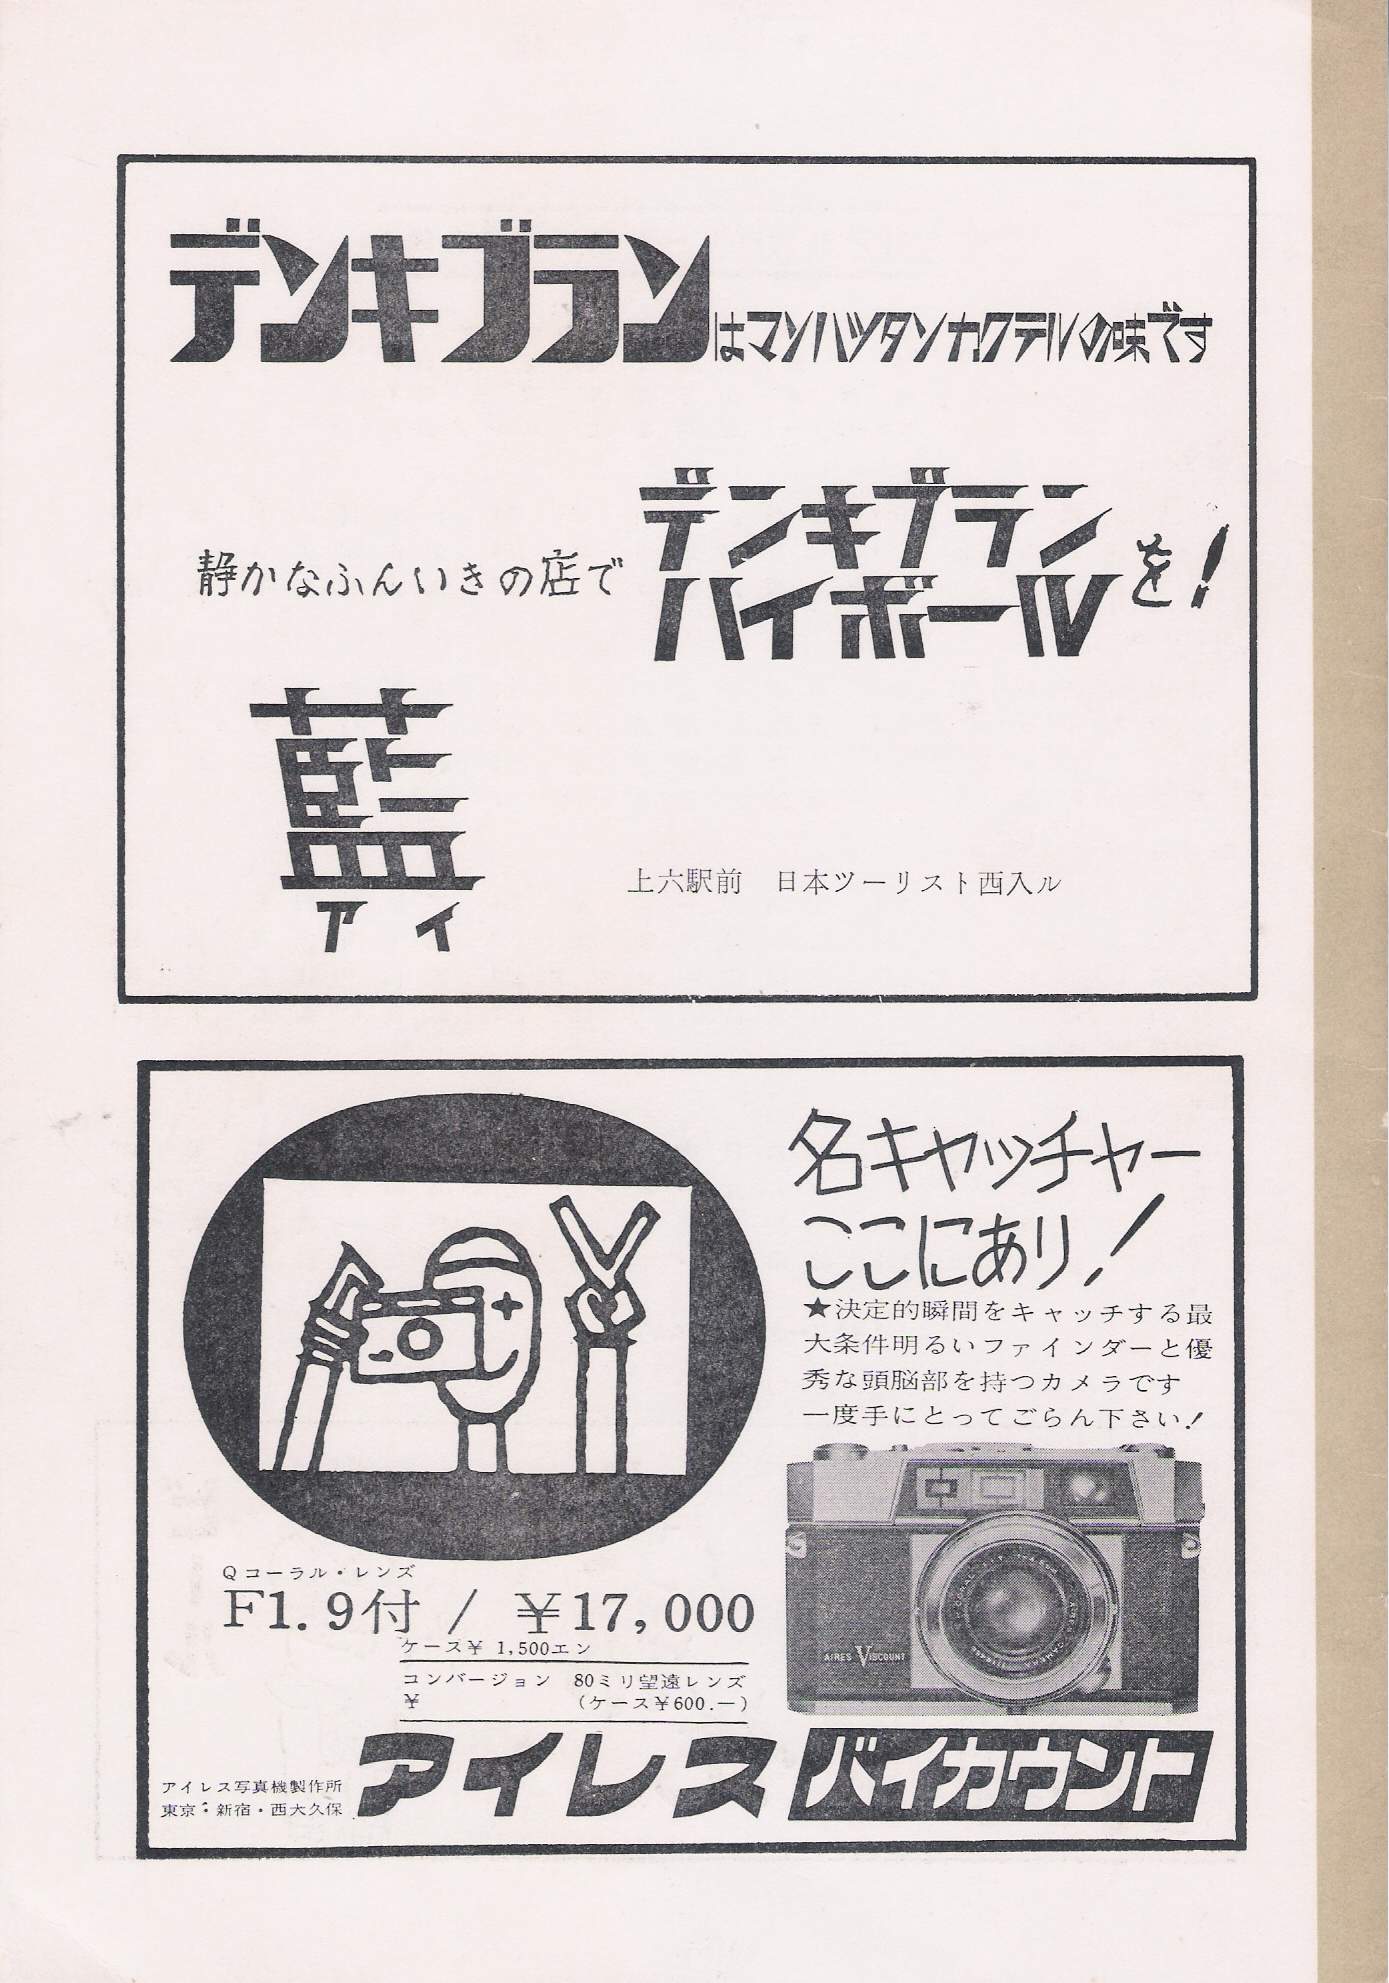 デンキブランはマンハツタンカクテルの味です
静かなふんいきの店で
デンキブラン
ハイボール
を!
藍
アイ
上六駅前 日本ツーリスト西入ル
名キャッチャー
ここにあり!
★決定的瞬間をキャッチする最
大条件明るいファインダーと優
秀な頭脳部を持つカメラです
一度手にとってごらん下さい!
AIRES VISCOUNT
Qコーラル・レンズ
F1.9付 / ¥17,000
ケース¥ 1,500エン
コンバージョン 80ミリ望遠レンズ
¥ (ケース¥600.—)
アイレス写真機製作所
東京・新宿・西大久保
アイレス バイカウント